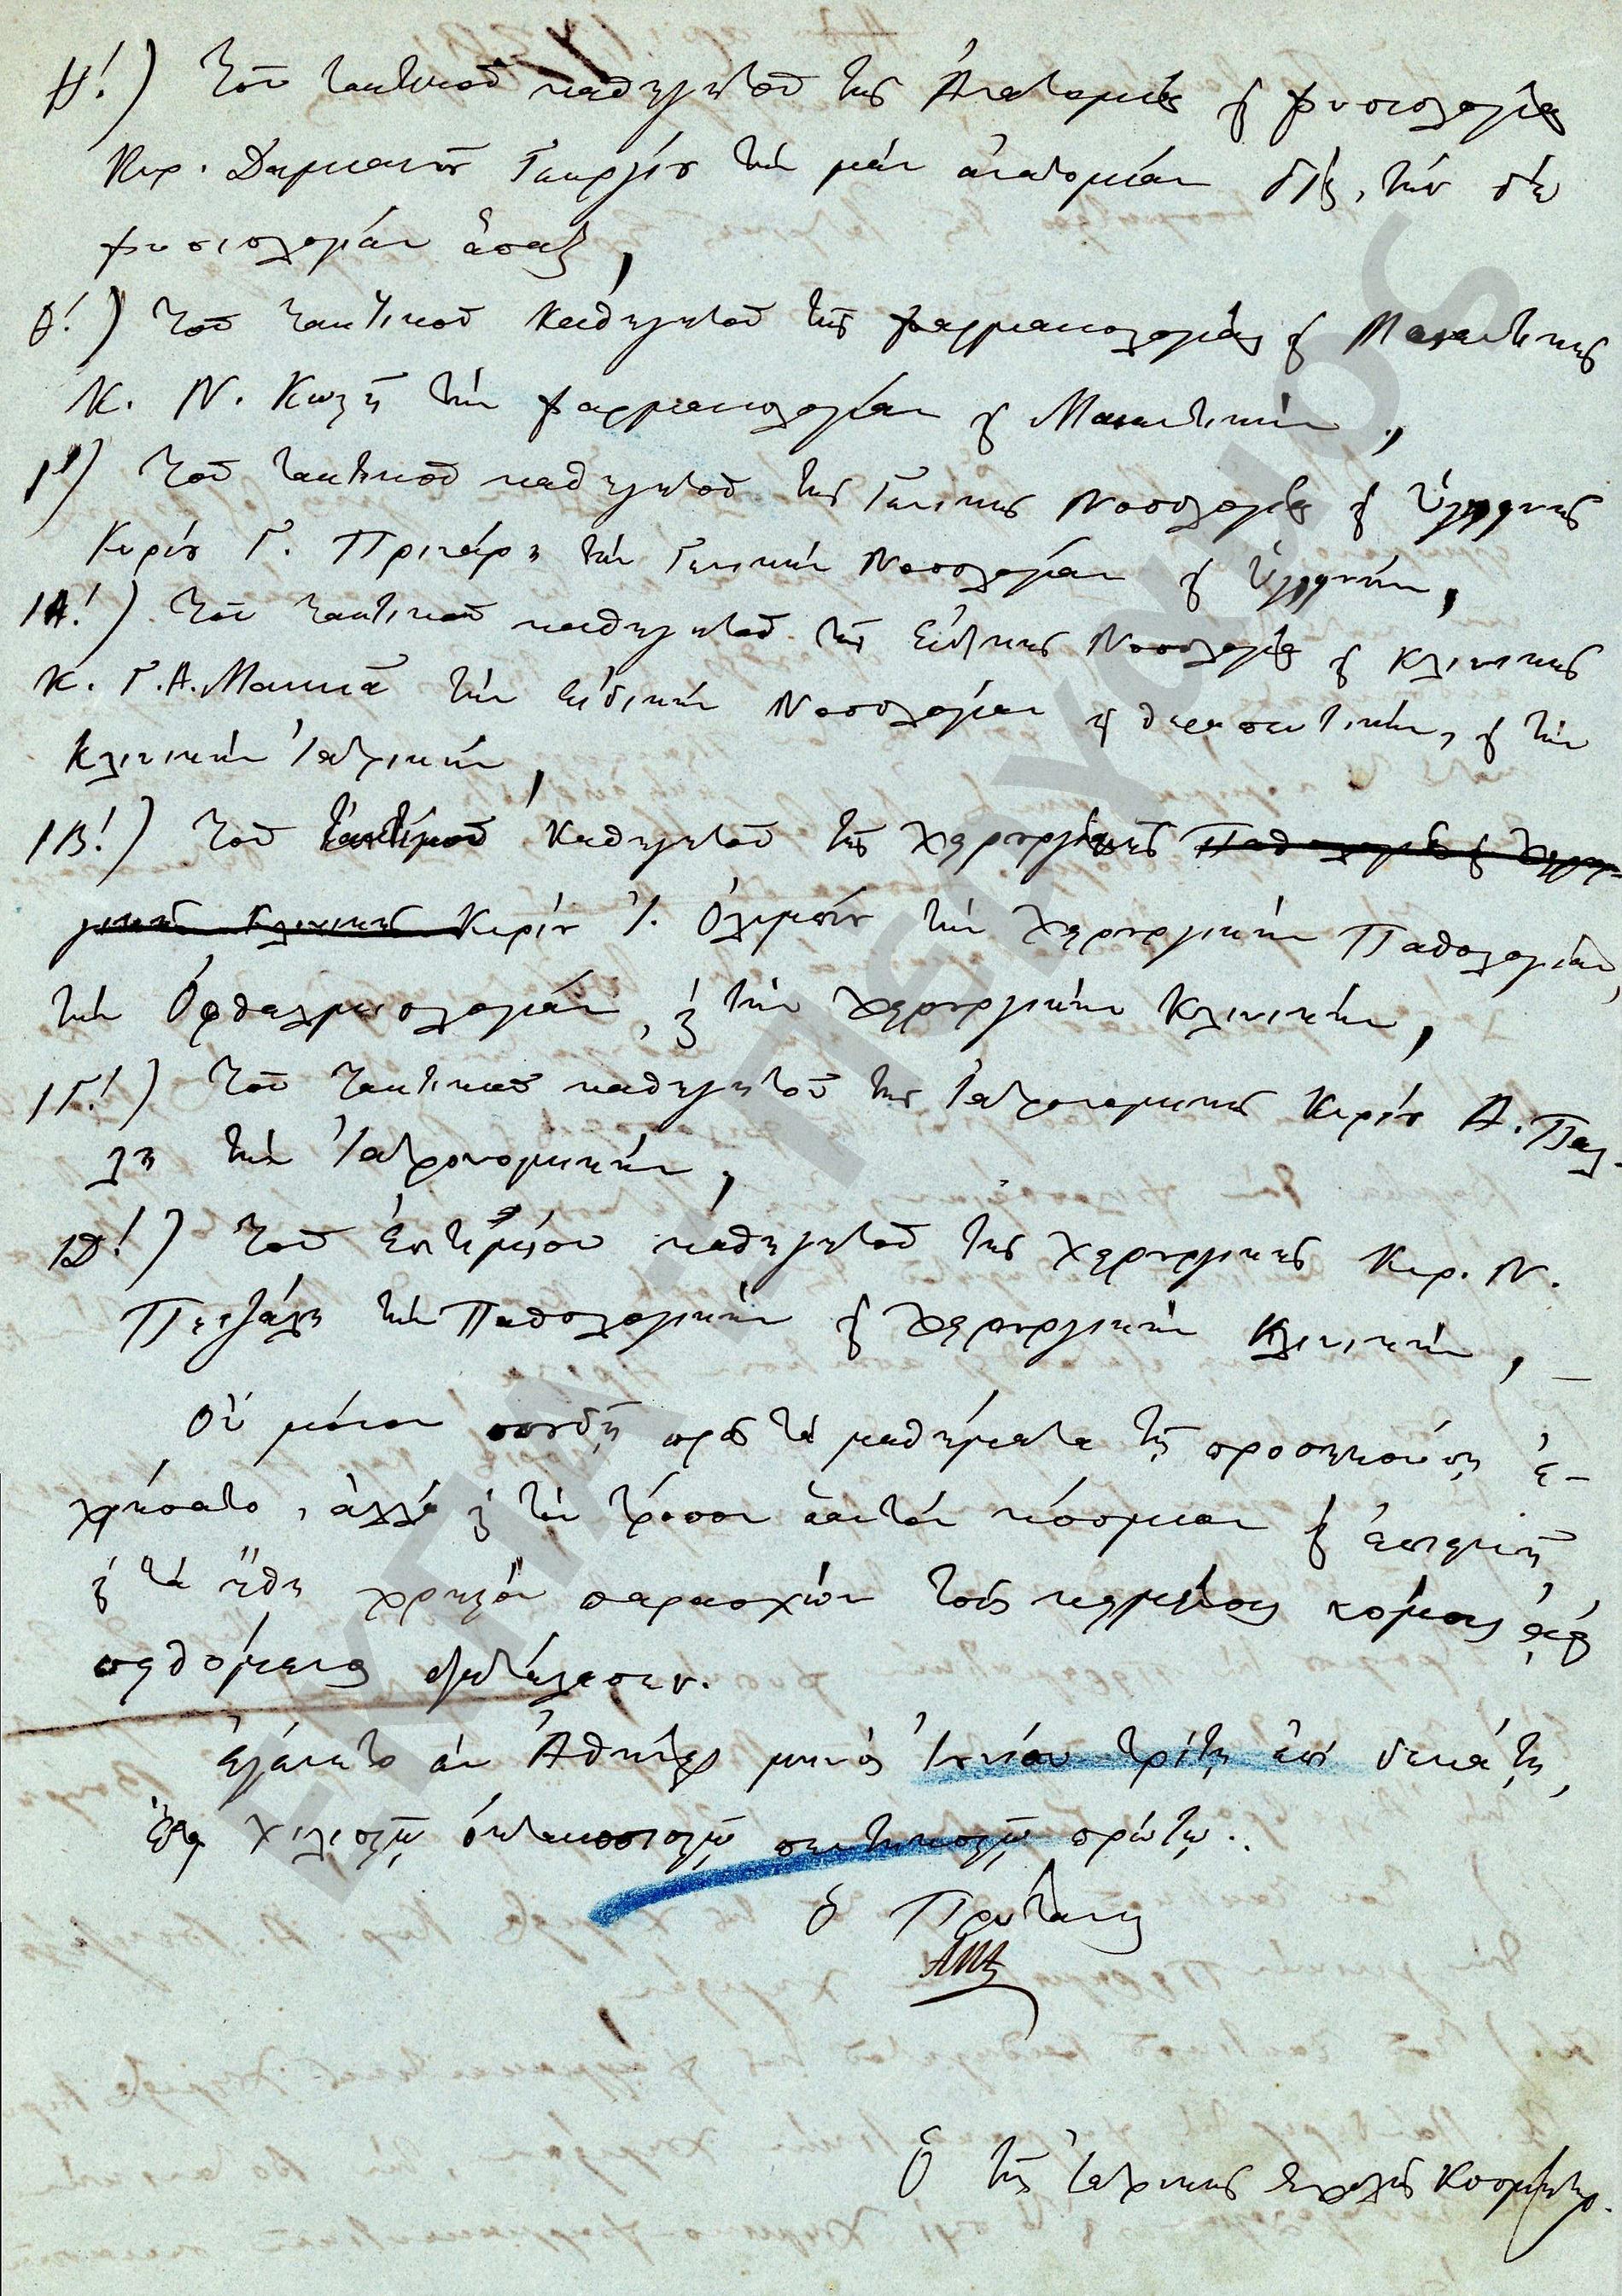 Η!) Τοῦ τακτικοῦ καθηγητοῦ τῆς Ἀνατομίας ϗ φυσιολογίας
Κυρ. Δαμιανοῦ Γεωργίου τὴν μὲν ἀνατομίαν δὶς, τὴν δὲ
φυσιολογίαν ἅπαξ,
Θ!) Τοῦ τακτικοῦ καθηγητοῦ τῆς φαρμακολογίας ϗ Μαιευτικῆς
Κ. Ν. Κωστῆ τὴν φαρμακολογίαν ϗ Μαιευτικὴν,
Ι!) Τοῦ τακτικοῦ καθηγητοῦ τῆς Γενικῆς Νοσολογίας ϗ Ὑγιεινῆς
Κυρίου Γ. Πρινάρη τὴν Γενικὴν Νοσολογίαν ϗ Ὑγιεινὴν,
ΙΑ!) Τοῦ τακτικοῦ καθηγητοῦ τῆς Εἰδικῆς Νοσολογίας ϗ Κλινικῆς
Κ. Γ. Α. Μακκᾶ τὴν Εἰδικὴν Νοσολογίαν ϗ θεραπευτικὴν, ϗ τὴν
Κλινικὴν Ἰατρικὴν,
ΙΒ!) Τοῦ καθηγητοῦ τῆς Χειρουργικῆς Παθολογίας ϗ Χειρουρ-
γικῆς Κλινικῆς Κυρίου Ἰ. Ὀλυμπίου τὴν Χειρουργικὴν Παθολογίαν,
τὴν Ὀφθαλμολογίαν, ϗ τὴν Χειρουργικὴν Κλινικὴν,
ΙΓ!) Τοῦ τακτικοῦ καθηγητοῦ τῆς Ἰατρονομικῆς Κυρίου Α. Πάλ-
λη τὴν Ἰατρονομικὴν,
ΙΔ!) Τοῦ Ἐπιτίμου καθηγητοῦ τῆς Χειρουργικῆς Κυρ. Ν.
Πετζάλη τὴν Παθολογικὴν ϗ Χειρουργικὴν Κλινικὴν,
Οὐ μόνον σπουδῇ πρὸς τὰ μαθήματα τῇ προσηκούσῃ ἐ-
χρήσατο, ἀλλὰ ϗ τὸν τρόπον ἑαυτὸν κόσμιον ϗ ἐπιεικῆ
ϗ τὰ ἤθη χρηστὸν παρασχὼν τοῖς κειμένοις νόμοις ἀεὶ
πειθόμενος διετέλεσεν.
Ἐγένετο ἐν Ἀθήναις μηνὸς Ἰουνίου τρίτῃ ἐπὶ δεκάτῃ,
ἔτει χιλιοστῷ ὀκτακοσιοστῷ πεντηκοστῷ πρώτῳ.
Ὁ Πρύτανις
Ὁ τῆς Ἰατρικῆς Σχολῆς Κοσμήτωρ.